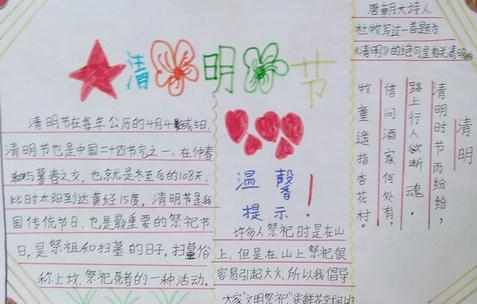 清明节
清明节在每年公历的4月4或5日,
清明节也是中国二十四节气之一,在仲春
与暮春之交,也就是冬至后的108天,
此时太阳到达黄经15度,清明节是我
国传统节日,也是最重要的祭祀节
日,是祭祖和扫墓的日子。扫墓俗
称上坟,祭祀死者的一种活动。
温馨
提示!
许多人祭祀时是在山
上,但是在山上祭祀很
容易引起大火,所以我倡导
大家"文明祭祀"
唐朝大诗人
杜牧写过一首题为
《清明》的
清明
清明时节雨纷纷,
路上行人欲断魂。
借问酒家何处有,
牧童遥指杏花村。